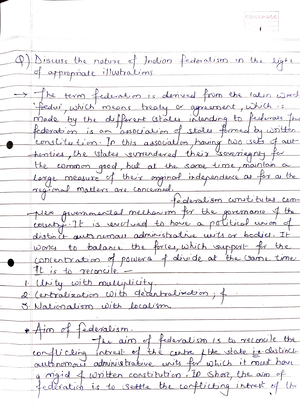 1
Q) Discuss the nature of Indian federalism in the light
of appropriate illustrations
→ The term federalism is derived from the latin word
'fedus', which means treaty or agreement, which is
made by the different states intending to
federation is an association of states formed by written
constitution. In this association, having two sets of aut-
horities, the states surrendered their sovereignty for
the common good, but at the same time, maintain a
large measure of their original independence as far as the
regional matters are concerned.
Federalism constitutes com-
plex governmental mechanism for the governance of the
country. It is evolved to have a political union of
distinct autonomous administrative units or bodies. It
works to balance the forces, which support for the
concentration of powers & divide at the same time
It is to reconcile —
1. Unity with multiplicity.
2. Centralization with decentralization; &
3. Nationalism with localism.
* Aim of federalism.
The aim of federalism is to reconcile the
conflicting interest of the centre & the state i.e. distinct
autonomous administrative units for which it must have
a rigid & written constitution. In short, the aim of
federation is to settle the conflicting interest of the